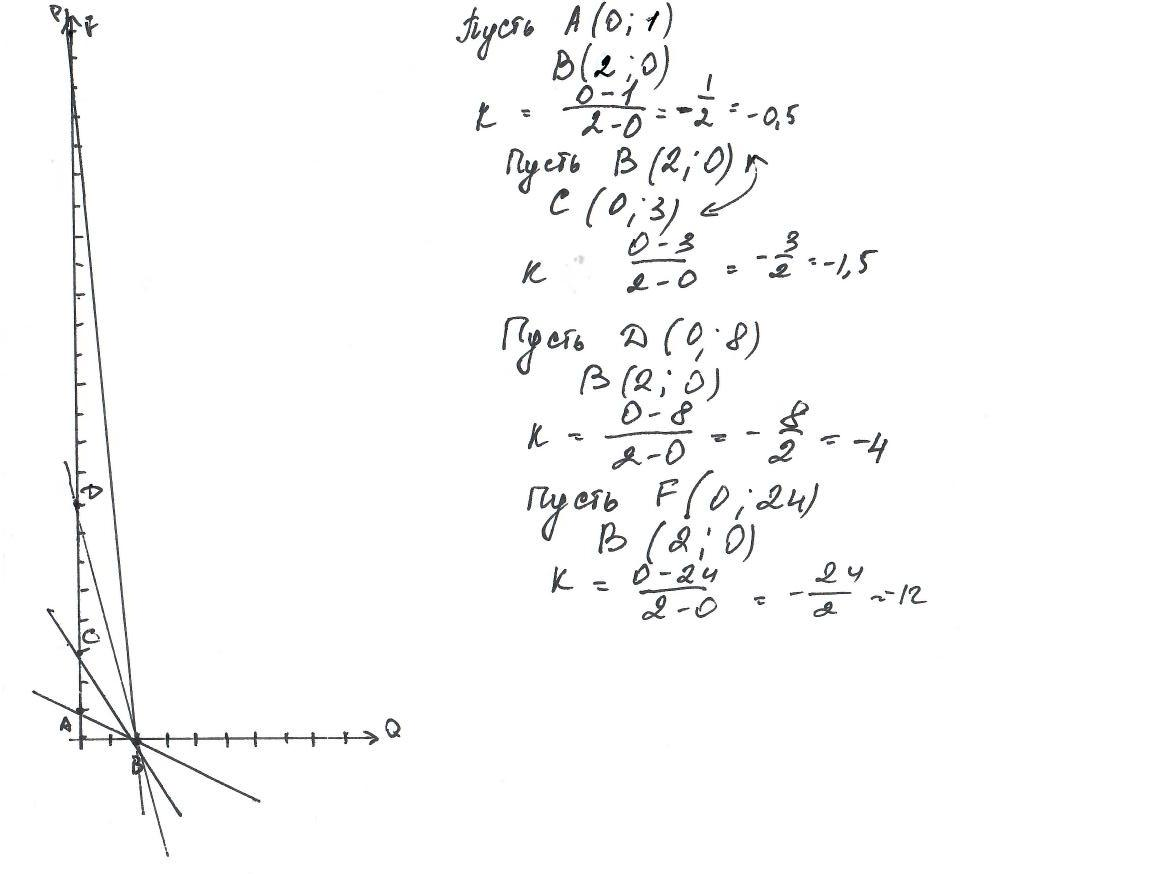 P
F
D
C
A
B
Q
Пусть A(0; 1)
B(2; 0)
K = 0-1 / 2-0 = -1/2 = -0,5
Пусть B(2; 0)
C (0; 3)
K 0-3 / 2-0 = -3/2 = -1,5
Пусть D(0; 8)
B(2; 0)
K = 0-8 / 2-0 = -8/2 = -4
Пусть F(0; 24)
B (2; 0)
K = 0-24 / 2-0 = -24/2 = -12